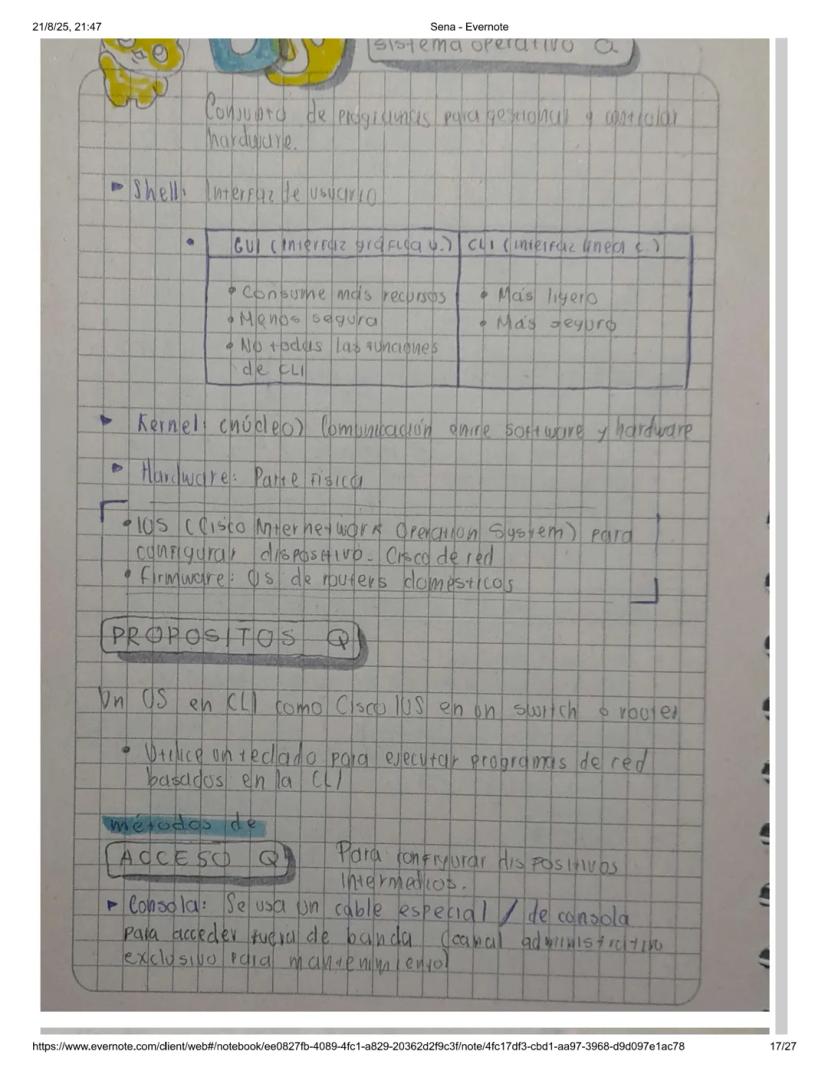 21/8/25, 21:47
Sena - Evernote
OS
sistema operativo Q
Conjunto de programas para gestionar y controlar
hardware.
Shell: Interfaz de usuario
GUI (interfaz gráfica u.)
CLI (interfaz linea c.)
• Consume más recursos
• Menos segura
• No todas las funciones
de CLI
• Más ligero
• Más seguro
Kernel: (núcleo) Comunicación entre software y hardware
Hardware: Parte física
• IOS (Cisco Internetwork Operation System) para
configurar dispositivo. Cisco de red
• Firmware: Os de routers domésticos
PROPOSITOS Q
Un OS en CLI como Cisco IOS en un switch o router
• Utilice un teclado para ejecutar programas de red
basados en la CLI
métodos de
ACCESO Q
Para configurar dispositivos
intermedios.
Consola: Se usa un cable especial / de consola
para acceder fuera de banda (canal administrativo
exclusivo para mantenimiento)
https://www.evernote.com/client/web#/notebook/ee0827fb-4089-4fc1-a829-20362d2f9c3f/note/4fc17df3-cbd1-aa97-3968-d9d097e1ac78
17/27